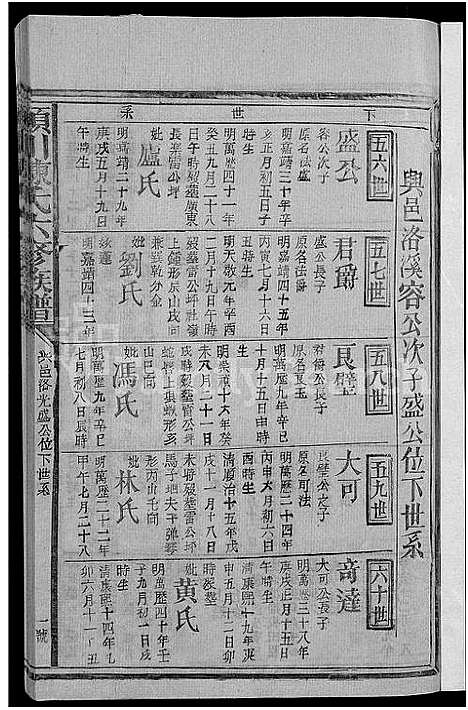 與邑洛溪容公次子盛公位下世系
下世系
五六世
盛公
容公次子
原名法盛
明嘉靖三十年辛
亥正月初五日子
時生
明萬歷四十一年
癸丑九月二十八
午時歿葬廣東
長樂雷公坪
妣盧氏
明嘉靖二十九年
庚戌五月十九日
午時生
五七世
君爵
盛公長子
明嘉靖四十五年
丙寅七月十六日
時生
明天啟元年辛酉
二月十九日午時
歿葬雷公坪社嶺
上鍾形東山戌向
兼巽乾分金
妣劉氏
歿葬
明嘉靖四十三年
五八世
艮璧
君爵公長子
原名夏玉
明萬歷九年辛巳
十月十五日申時
生
明崇禎十六年癸
未八月二十一日
蛇形
山巳向
妣馮氏
明萬歷九年辛巳
七月初八日辰時
五九世
大可
艮璧公之子
原名可法
明萬歷二十四年
丙申六月初六日
酉時生
清順治十五年戊
戌十一月十八日
未時歿葬雷公坪
馬子地夫干彈琴
形丙山壬向
妣林氏
明萬歷二十二年
甲午七月二十八
六十世
奇達
大可公長子
明萬歷三十八年
庚戌正月十五日
午時生
清康熙十九年庚
申五月十二日卯
時歿葬
妣黃氏
明萬歷四十年壬
子九月初一日戌
時生
清康熙十四年乙
卯六月十一日丑
潁川陳氏六修族譜
興邑洛光盛公位下世系
一號